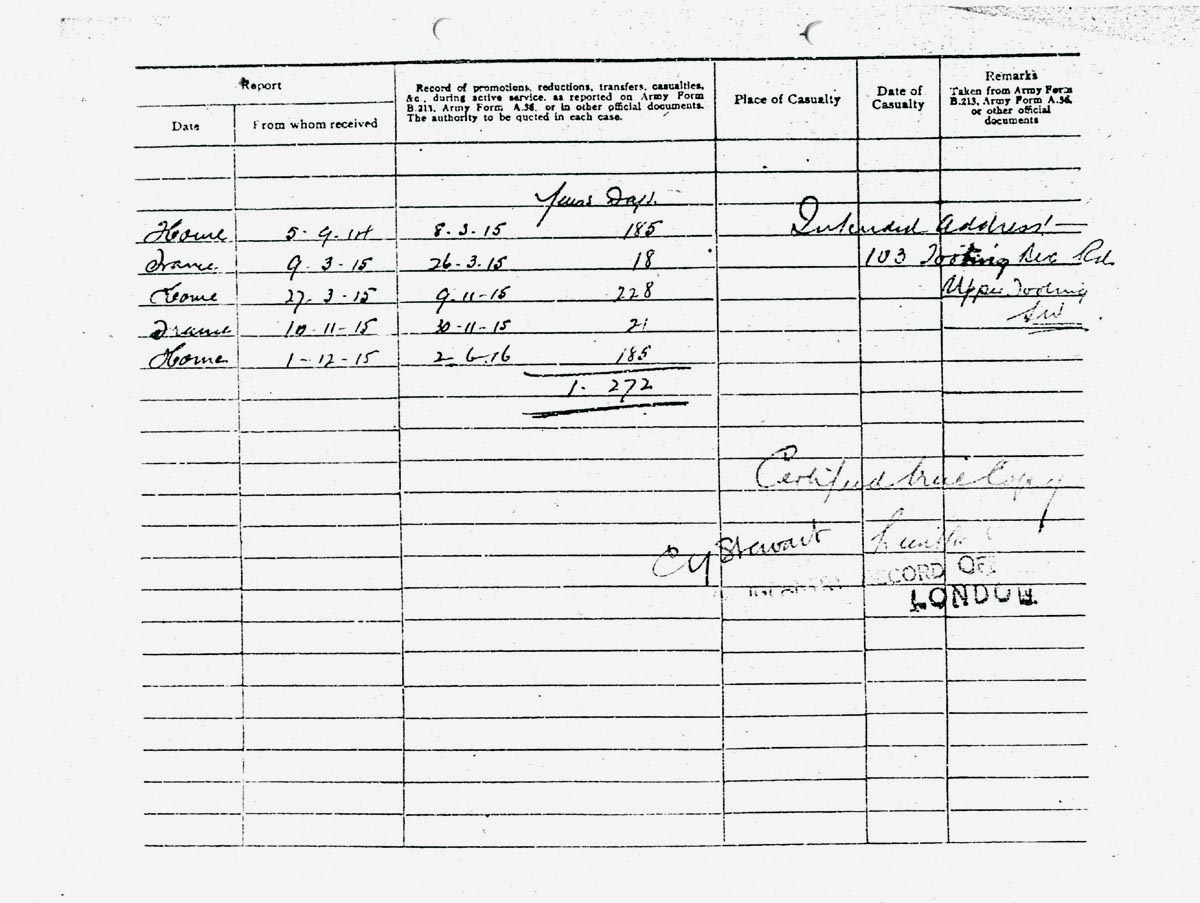 Report
Record of promotions, reductions, transfers, casualties, &c., during active service, as reported on Army Form B.213, Army Form A.36, or in other official documents. The authority to be quoted in each case.
Place of Casualty
Date of Casualty
Remarks
Taken from Army Form B.213, Army Form A.36, or other official documents
Date
From whom received
Years Days
Home 5-9-14 8-3-15 185 Intended Address:—
France 9-3-15 26-3-15 18 103 Tooting Bec Rd.
Home 27-3-15 9-11-15 228 Upper Tooting
France 10-11-15 30-11-15 21 SW
Home 1-12-15 2-6-16 185
1. 272
Certified true Copy
Stewart
RECORD OFF
LONDON